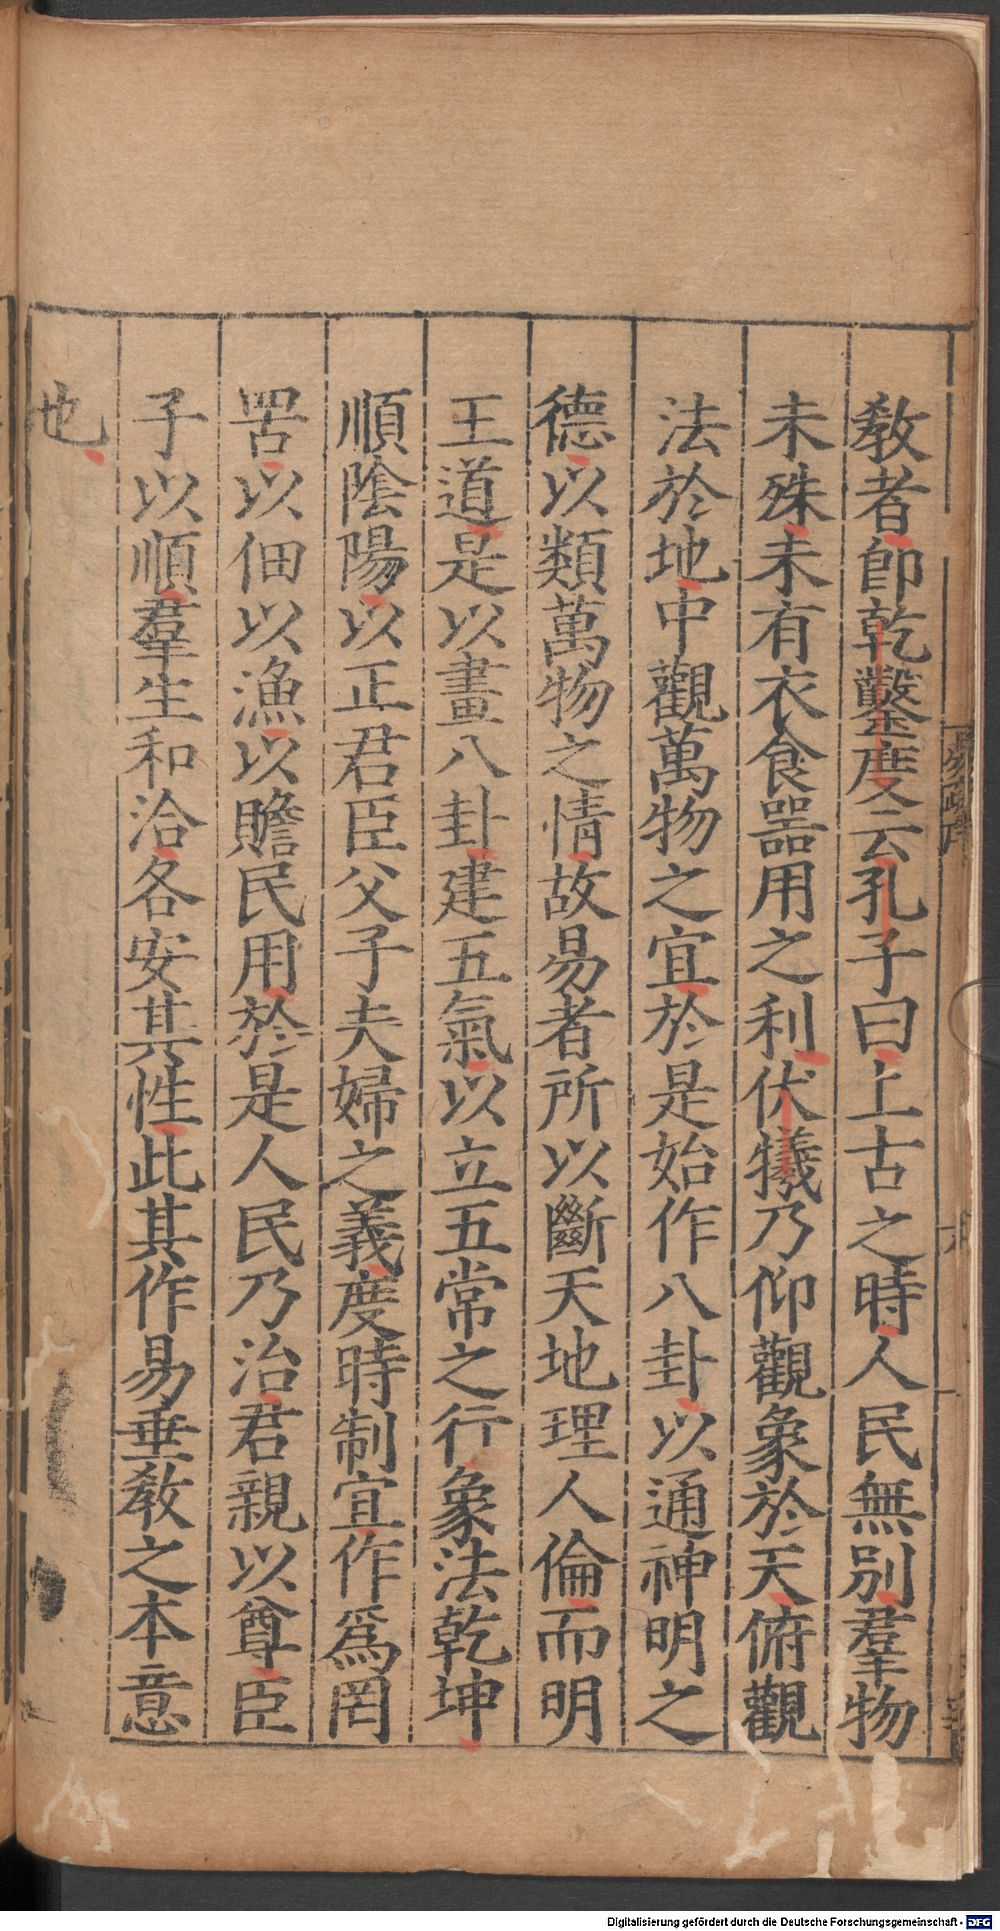 敎者卽乾鑿度云孔子曰上古之時人民無別羣物
未殊未有衣食器用之利伏犧乃仰觀象於天俯觀
法於地中觀萬物之宜於是始作八卦以通神明之
德以類萬物之情故易者所以斷天地理人倫而明
王道是以畫八卦建五氣以立五常之行象法乾坤
順陰陽以正君臣父子夫婦之義度時制宜作爲罔
罟以佃以漁以贍民用於是人民乃治君親以尊臣
子以順羣生和洽各安其性此其作易垂敎之本意
也
Digitalisierung gefördert durch die Deutsche Forschungsgemeinschaft - DFG